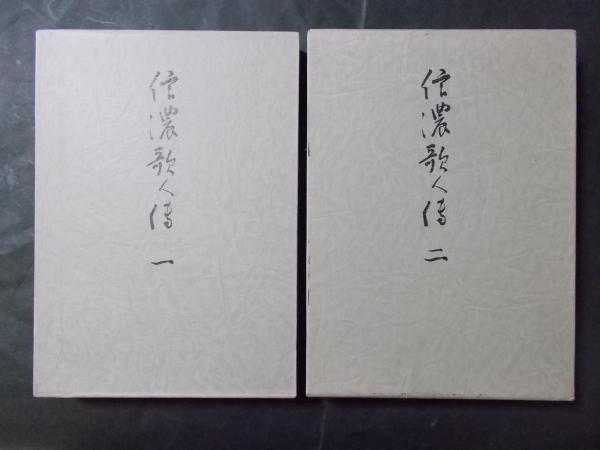 信濃歌人傳 一
信濃歌人傳 二